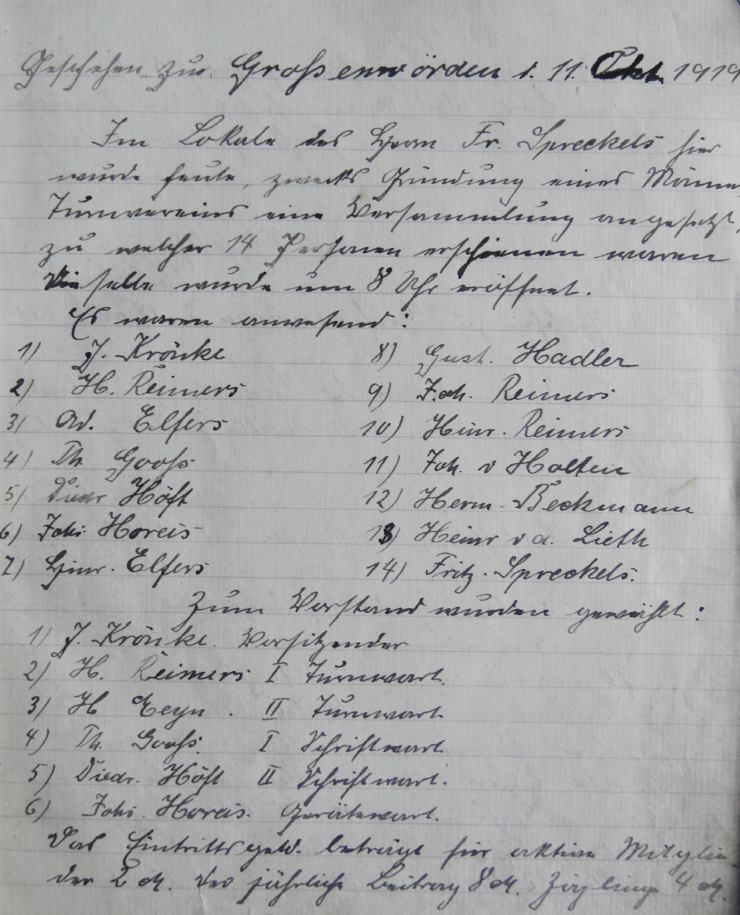 Geschehen zu Grossenwörden d. 11. Okt. 1919
Im Lokale des Herrn Fr. Spreckels hier
wurde heute, zwecks Gründung eines Männer
Turnvereins eine Versammlung angesetzt,
zu welcher 14 Personen erschienen waren
Dieselbe wurde um 8 Uhr eröffnet.
Es waren anwesend:
1) J. Krönke 8) Gust. Hadler
2) H. Reimers 9) Joh. Reimers
3) Ad. Elfers 10) Heinr. Reimers
4) Th. Gooss 11) Joh. v Holten
5) Diedr Höft 12) Herm. Beckmann
6) Johs Horeis 13) Heinr v d. Lieth
7) Hinr. Elfers 14) Fritz. Spreckels.
Zum Vorstand wurden gewählt:
1) J. Krönke. Vorsitzender
2) H. Reimers I Turnwart.
3) H. II Turnwart.
4) Th. Gooss. I Schriftwart.
5) Diedr. Höft II Schriftwart.
6) Johs. Horeis. Gerätewart.
Das Eintrittsgeld. beträgt für aktive Mitglie-
der 2 M. der jährliche Beitrag 8 M. Zöglinge 4 M.